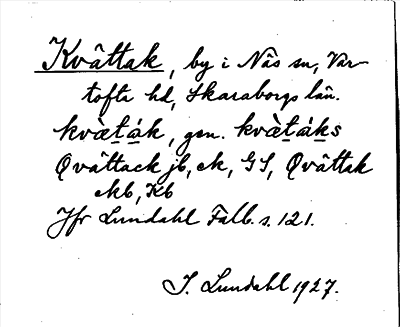 Kvättak, by i Näs sn, Var-
tofta hd, Skaraborgs län.
kvæ̀ṯá̱k, gen. kvæ̀ṯá̱ks
Qvättack jb, ek, GS, Qvättak
ekb, Kb
Jfr Lundahl Falb. s. 121.
I. Lundahl 1927.